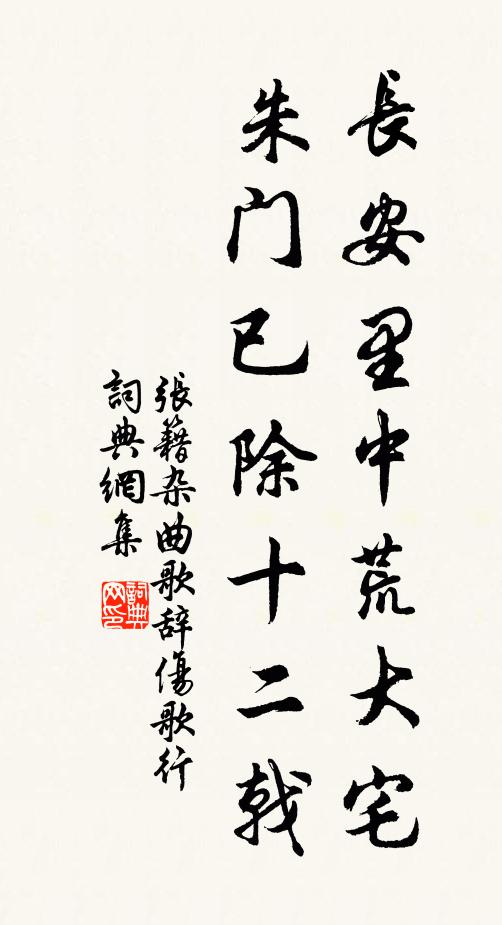 長安里中荒大宅
朱门已除十二戟
張籍杂曲歌辞傷歌行
詞典網集
詞典网印